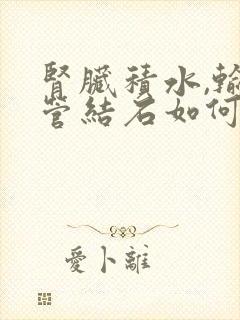 腎臟積水,輸
管結石如何
愛卜離